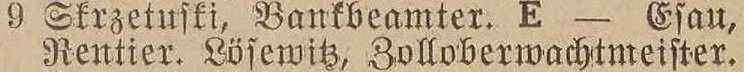 9 Skrzetuski, Bankbeamter. E — Esau,
Rentier. Lösewitz, Zolloberwachtmeister.